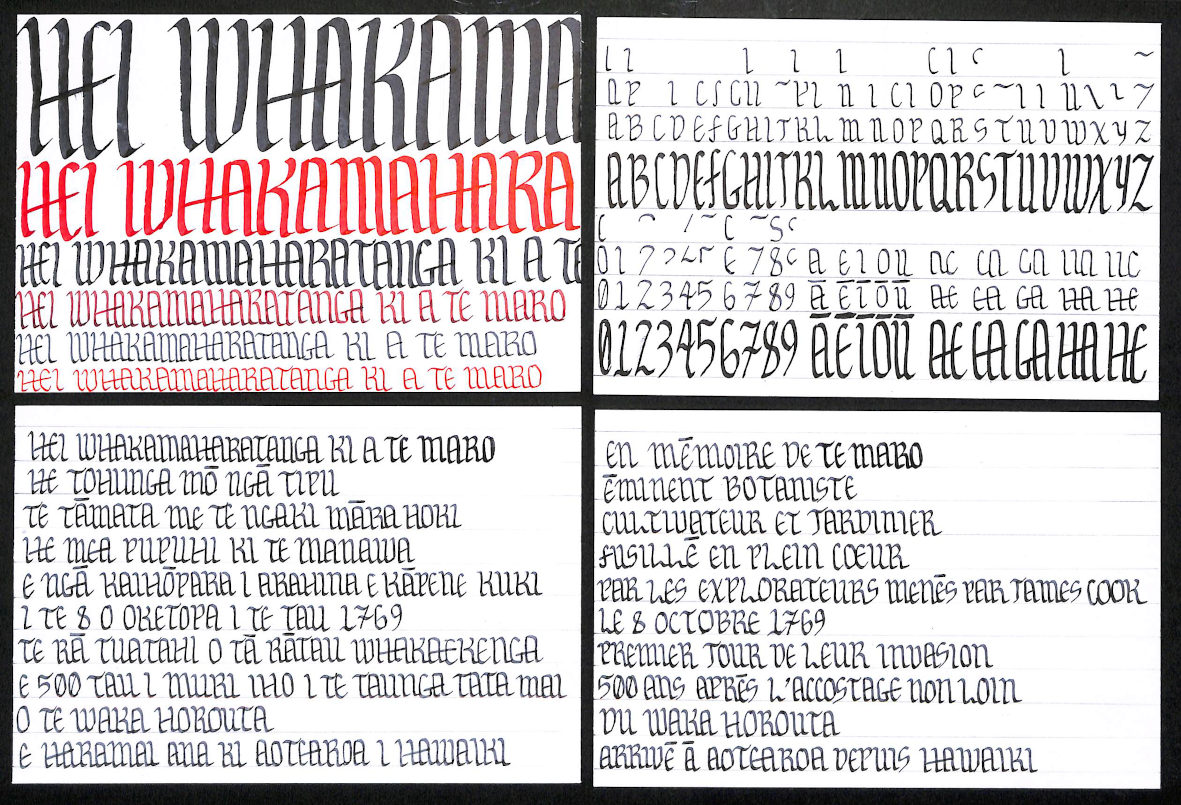 HEI WHAKAMA
HEI WHAKAMAHARA
HEI WHAKAMAHARATANGA KI A TE
HEI WHAKAMAHARATANGA KI A TE MARO
HEI WHAKAMAHARATANGA KI A TE MARO
HEI WHAKAMAHARATANGA KI A TE MARO
ABCDEFGHIJKLMNOPQRSTUVWXYZ
ABCDEFGHIJKLMNOPQRSTUVWXYZ
0123456789 ĀĒĪŌŪ AE EA GA HA HE
0123456789 ĀĒĪŌŪ AE EA GA HA HE
HEI WHAKAMAHARATANGA KI A TE MARO
HE TOHUNGA MŌ NGĀ TIPU
TE TĀMATA ME TE NGAKI MĀRA HOKI
HE MEA PUPUHI KI TE MANAWA
E NGĀ KAIHŌPARA I ARAHINA E KĀPENE KUKI
I TE 8 O OKETOPA I TE TAU 1769
TE RĀ TUATAHI O TĀ RĀTAU WHAKAEKENGA
E 500 TAU I MURI IHO I TE TAUNGA TATA MAI
O TE WAKA HOROUTA
E HARAMAI ANA KI AOTEAROA I HAWAIKI
EN MĒMOIRE DE TE MARO
ĒMINENT BOTANISTE
CULTIVATEUR ET JARDINIER
FUSILLĒ EN PLEIN CŒUR
PAR LES EXPLORATEURS MENĒS PAR JAMES COOK
LE 8 OCTOBRE 1769
PREMIER JOUR DE LEUR INVASION
500 ANS APRĒS L'ACCOSTAGE NON LOIN
DU WAKA HOROUTA
ARRIVĒ Ā AOTEAROA DEPUIS HAWAIKI